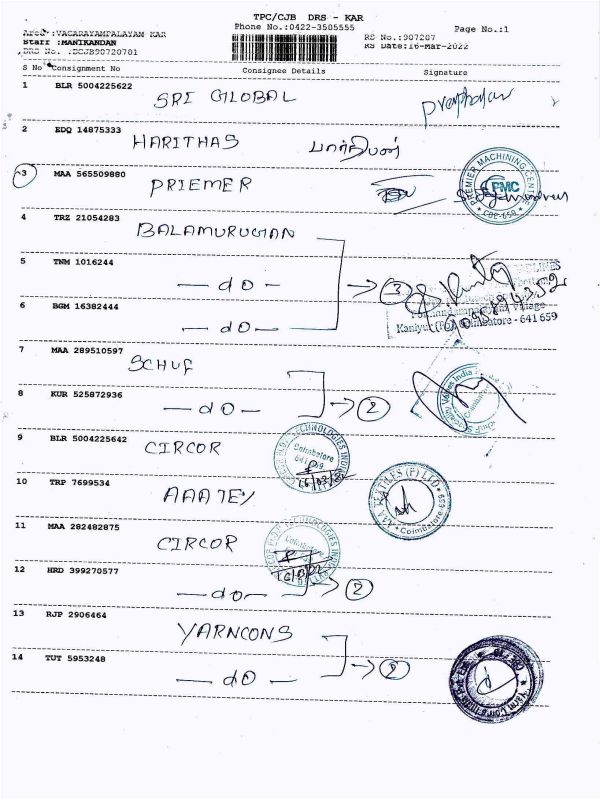 TPC/CJB DRS - KAR
Phone No.:0422-3505555
Page No.:1
Area :VAGARAYAMPALAYAM KAR
Staff :MANIKANDAN
DRS No. :DCJB90720701
RS No.:907207
RS Date:16-Mar-2022
S No Consignment No Consignee Details Signature
1 BLR 5004225622
SRI GLOBAL
2 EDQ 14875333
HARITHAS பார்திபன்
3 MAA 565509880
PRIEMER
PREMIER MACHINING
PMC
CBE-659
4 TRZ 21054283
BALAMURUGAN
5 TNM 1016244
— do — → 3
6 BGM 16382444
— do —
Village
Kaniyur (PO) Coimbatore - 641 659
7 MAA 289510597
SCHUF
Valves India
8 KUR 525872936
— do — → 2
9 BLR 5004225642
CIRCOR
TECHNOLOGIES INDIA
Coimbatore
10 TRP 7699534
AAATEX
TEXTILES (P) LTD
Coimbatore
11 MAA 282482875
CIRCOR
12 HRD 399270577
— do — → 2
13 RJP 2906464
YARNCONS
14 TUT 5953248
— do — → 2